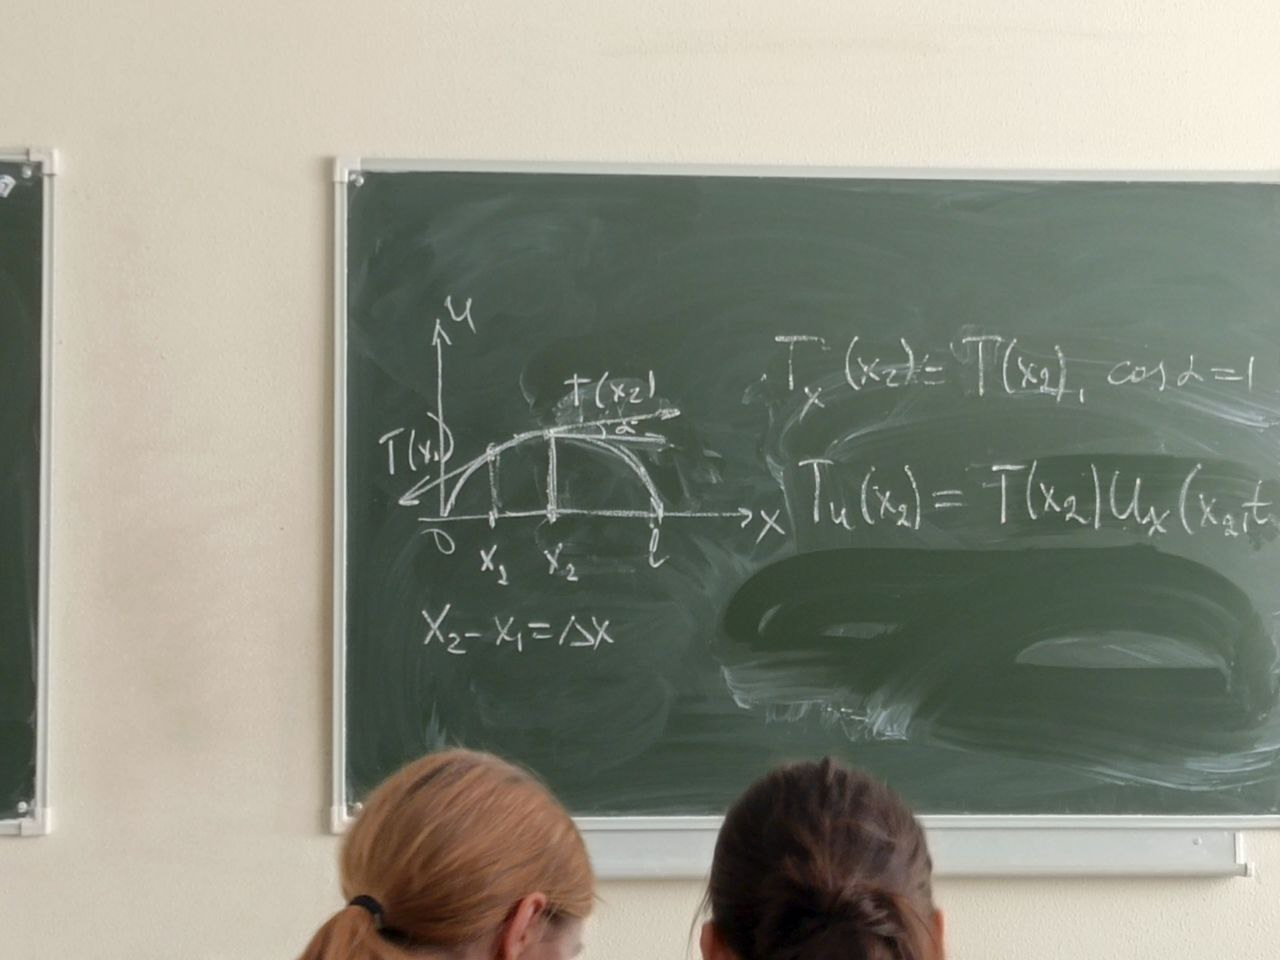 u
T(x₂)
α
T(x₁)
0 x₁ x₂ l x
x₂ - x₁ = Δx
Tₓ(x₂) = T(x₂), cos α = 1
Tᵤ(x₂) = T(x₂) uₓ(x₂, t